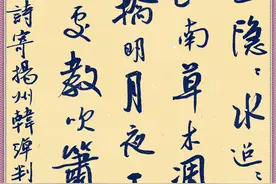 隐〻水迢〻
南草木凋
橋明月夜
處教吹簫
詩寄揚州韓綽判